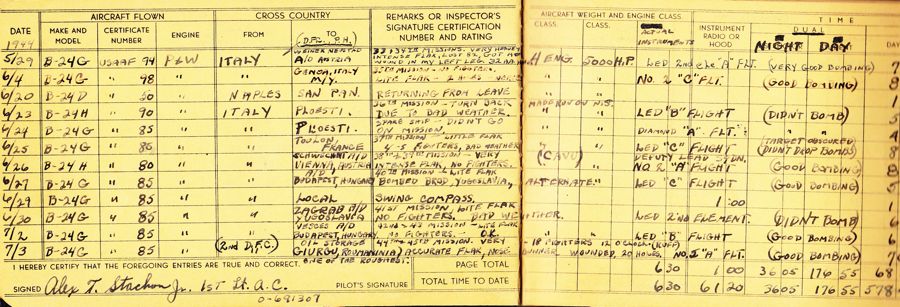 AIRCRAFT FLOWN
CROSS COUNTRY
REMARKS OR INSPECTOR'S SIGNATURE CERTIFICATION NUMBER AND RATING
AIRCRAFT WEIGHT AND ENGINE CLASS
TIME
DATE MAKE AND MODEL CERTIFICATE NUMBER ENGINE FROM TO CLASS. CLASS. ACTUAL INSTRUMENTS INSTRUMENT RADIO OR HOOD DUAL
1944 (D.F.C., P.H.) NIGHT DAY
WEINER NEUSTAD 33 & 34TH MISSIONS. VERY HEAVY
5/29 B-24G USAAF 94 P&W ITALY A/D AUSTRIA H ENG. 5000 H.P. LED 2nd ele. "A" FLT. (VERY GOOD BOMBING)
WOUND IN MY LEFT LEG.
GENOA, ITALY 35TH MISSION - NO FIGHTERS.
6/4 B-24G " 48 " " M/Y. LITE FLAK " " NO. 2 "C" FLT. (GOOD BOMBING)
6/20 B-24D " 50 " NAPLES SAN PAN. RETURNING FROM LEAVE
36TH MISSION - TURN BACK
6/23 B-24H " 90 " ITALY PLOESTI. DUE TO BAD WEATHER. " " LED "B" FLIGHT (DIDN'T BOMB)
SPARE SHIP - DIDN'T GO
6/24 B-24G " 85 " " PLOESTI. ON MISSION. " " DIAMOND "A" FLT. "
TOULON, 37TH MISSION - LITTLE FLAK (TARGET OBSCURED)
6/25 B-24G " 86 " " FRANCE 4-5 FIGHTERS, BAD WEATHER " LED "C" FLIGHT (DIDN'T DROP BOMBS)
SCHWECHAT A/D 38TH & 39TH MISSION - VERY (CAVU) DEPUTY LEAD SQDN.
6/26 B-24H " 80 " " VIENNA, AUSTRIA INTENSE FLAK, NO FIGHTERS. " NO. 2 "A" FLIGHT (GOOD BOMBING)
A/D 40TH MISSION - LITE FLAK
6/27 B-24G " 85 " " BUDAPEST, HUNGARY BOMBED BROD, YUGOSLAVIA, ALTERNATE. " LED "C" FLIGHT (GOOD BOMBING)
6/29 B-24G " 85 " " LOCAL SWING COMPASS. " " 1:00
ZAGREB A/D 41ST MISSION, LITE FLAK
6/30 B-24G " 85 " " YUGOSLAVIA NO FIGHTERS. BAD WEATHER. " LED 2nd ELEMENT. (DIDN'T BOMB)
42ND & 43 MISSION - LITE FLAK
7/2 B-24G " 85 " " BUDAPEST, HUNGARY. FIGHTERS - OK. " " LED "B" FLIGHT (GOOD BOMBING)
OIL STORAGE 44TH & 45TH MISSION. VERY - 18 FIGHTERS 12 O'CLOCK
7/3 B-24G " 85 " (2nd D.F.C.) GIURGIU, ACCURATE FLAK, NOSE GUNNER WOUNDED, 20 HOLES, NO. 2 "A" FLT. (GOOD BOMBING)
ONE OF THE ROUGHEST.
I HEREBY CERTIFY THAT THE FOREGOING ENTRIES ARE TRUE AND CORRECT. PAGE TOTAL 6:30 1:00 3605 176 55 68
SIGNED Alex T. Stachon Jr. 1st Lt. A.C. PILOT'S SIGNATURE TOTAL TIME TO DATE 6:30 61:20 3605 176 55 578
O-691307